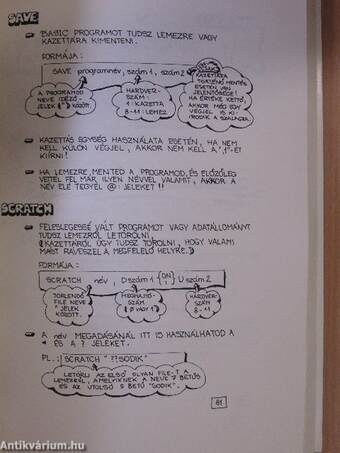 SAVE
BASIC PROGRAMOT TUDSZ LEMEZRE VAGY
KAZETTÁRA KIMENTENI.
FORMÁJA:
SAVE programnév, szám 1, szám 2
A PROGRAMOD
NEVE IDÉZŐ-
JELEK KÖZÖTT.
HARDVER-
SZÁM:
1: KAZETTA
8-11: LEMEZ
KAZETTÁRA
TÖRTÉNŐ MENTÉS
ESETÉN VAN
JELENTŐSÉGE!
HA ÉRTÉKE KETTŐ,
AKKOR MÉG EGY
VÉGJEL IS KI-
ÍRÓDIK A SZALAGRA.
KAZETTÁS EGYSÉG HASZNÁLATA ESETÉN, HA NEM
KELL KÜLÖN VÉGJEL, AKKOR NEM KELL A ",1"-ET
KIÍRNI!
HA LEMEZRE MENTED A PROGRAMOD, ÉS ELŐZŐLEG
VETTÉL FEL MÁR ILYEN NÉVVEL VALAMIT, AKKOR A
NÉV ELÉ TEGYÉL @: JELEKET!!
SCRATCH
FELESLEGESSÉ VÁLT PROGRAMOT VAGY ADATÁLLOMÁNYT
TUDSZ LEMEZRŐL LETÖRÖLNI.
(KAZETTÁRÓL ÚGY TUDSZ TÖRÖLNI, HOGY VALAMI
MÁST RÁVESZEL A MEGFELELŐ HELYRE.)
FORMÁJA:
SCRATCH név, D szám 1 {ON ,} U szám 2
TÖRLENDŐ
FILE NEVE
" JELEK
KÖZÖTT.
MEGHAJTÓ-
SZÁM
(0 VAGY 1)
HARDVER-
SZÁM
8-11
A név MEGADÁSÁNÁL ITT IS HASZNÁLHATOD A
* ÉS A ? JELEKET.
PL.: SCRATCH "??SODIK"
LETÖRLI AZ ELSŐ OLYAN FILE-T A
LEMEZRŐL, AMELYIKNEK A NEVE 7 BETŰS
ÉS AZ UTOLSÓ 5 BETŰ "SODIK".
81
Antikvárium.hu